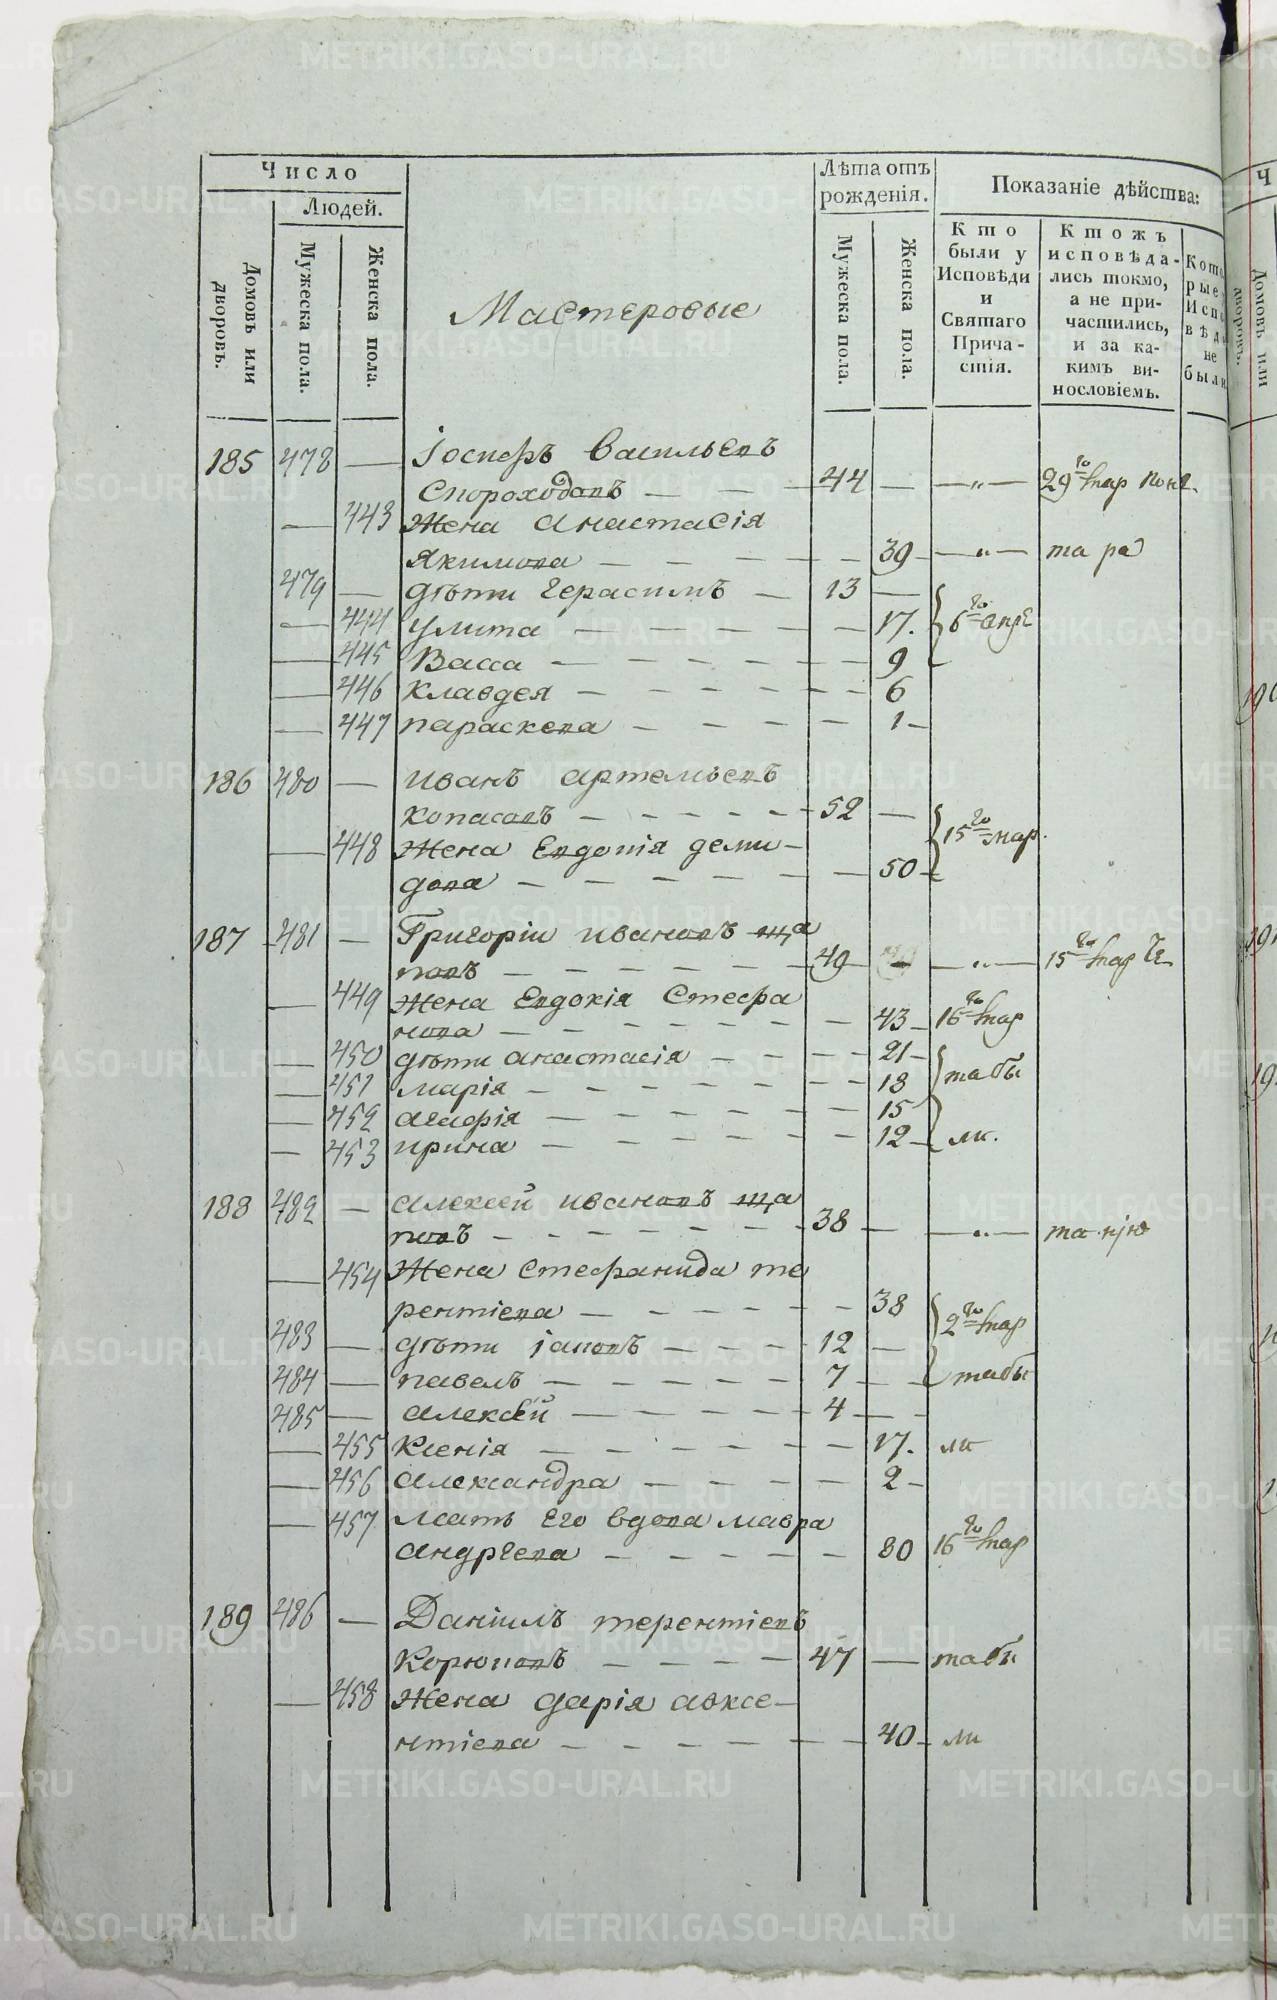 Число
Людей.
Домовъ или дворовъ.
Мужеска пола.
Женска пола.
Мастеровые
Лѣта отъ
рожденія.
Мужеска пола.
Женска пола.
Показаніе дѣйства:
Кто
были у
Исповѣди
и
Святаго
Прича-
стія.
Ктожъ
исповѣда-
лись токмо,
а не при-
частились,
и за ка-
кимъ ви-
нословіемъ.
Кото
рые
Испо
вѣд
не
были
185 478 — Іосифъ Васильевъ
Спороходовъ — — — 44 — —„— 29го мар
— 443 Жена Анастасія
Якимова — — — — 39 — —„— та ра
479 — дѣти Герасимъ — 13 —
— 444 Улита — — — — — 17. 6го апр
— 445 Васса — — — — — 9
— 446 Клавдея — — — — — 6
— 447 параскева — — — — 1 —
186 480 — иванъ артемьевъ
Копасовъ — — — — — 52 —
— 448 Жена Евдокія деми- 15го мар.
дова — — — — — 50 —
187 481 — Григоріи ивановъ ща
повъ — — — — — 49 — —„— 15го мар
— 449 Жена Евдокія Стефа
нова — — — — — 43 — 16го мар
— 450 дѣти анастасія — — — — 21 —
— 451 марія — — — — — 18 табы
— 452 агафія — — — — — 15
— 453 ирина — — — — — 12 — ли.
188 482 — алексѣй ивановъ ща
повъ — — — — — 38 — —„—
— 454 Жена Стефанида те
рентіева — — — — 38
483 — дѣти іаковъ — — — 12 — 2го мар
484 — павелъ — — — — 7 — — табы
485 — алексѣй — — — — 4 — —
— 455 Ксенія — — — — — 17. ли
— 456 александра — — — — 2 —
— 457 мать Его вдова мавра
андрѣева — — — — 80 16го мар
189 486 — Даніилъ терентіевъ
Корюковъ — — — — 47 — табы
— 458 Жена дарія авксе-
нтіева — — — — — 40 — ли
METRIKI.GASO-URAL.RU